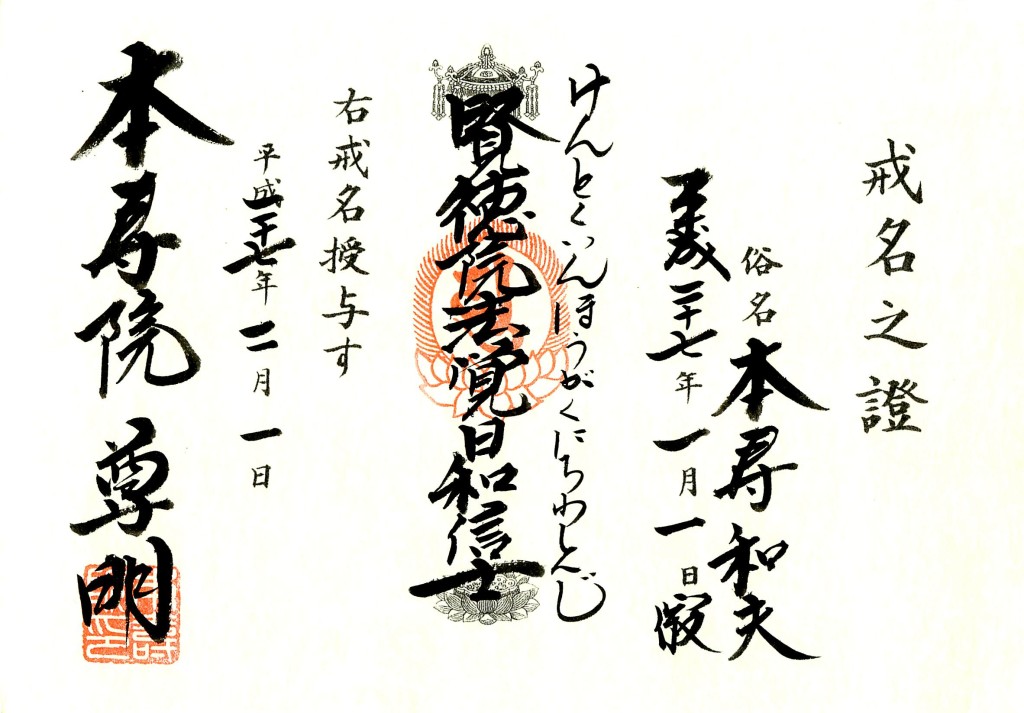 戒名之證
俗名 本尋和夫
平成二十七年一月一日歿
けんとくいんほうがくにちわしんじ
賢徳院法覚日和信士
右戒名授与す
平成二十七年二月一日
本尋院 尊明